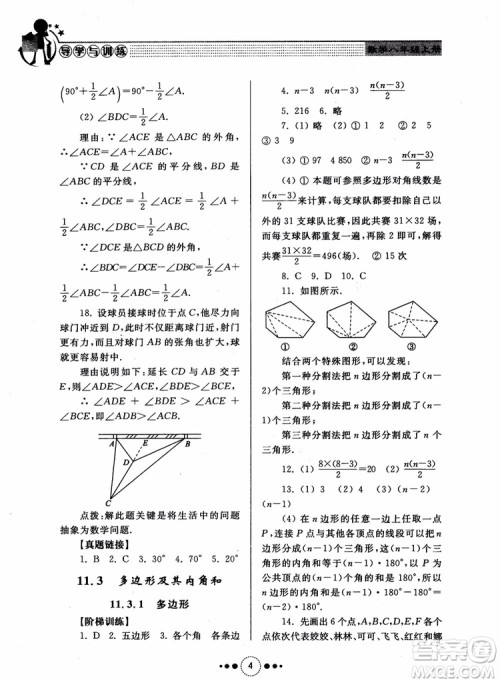 导学与训练
数学八年级上册
(90°+1/2∠A)=1/2∠A.
(2) ∠BDC=1/2∠A.
理由:∵∠ACE 是△ABC 的外角,
∴∠ACE=∠A+∠ABC.
∵CD 是∠ACE 的平分线,BD 是
∠ABC 的平分线,
∴∠DCE=1/2∠ACE=1/2∠A+
1/2∠ABC,∠DBC=1/2∠ABC.
∵∠DCE 是△BCD 的外角,
∴∠BDC=∠DCE-∠DBC=1/2∠A+
1/2∠ABC-1/2∠ABC=1/2∠A.
18. 设球员接球时位于点 C,他尽力向
球门冲近到 D,此时不仅距离球门近,射门
更有力,而且对球门 AB 的张角也扩大,球
就更容易射中.
理由说明如下:延长 CD 到 E,则
∠ADE>∠ACE,∠BDE>∠BCE,
∴∠ADE+∠BDE>∠ACE+
∠BCE,即∠ADB>∠ACB.
A
E
B
D
C
点拨:解此题关键是将生活中的问题
抽象为数学问题.
【真题链接】
1. B 2. C 3. 30° 4. 70° 5. 20°
11.3 多边形及其内角和
11.3.1 多边形
【阶梯训练】
1. D 2. 五边形 3. 各个角 各条边
4. n-3 n(n-3) n(n-3)/2
5. 216 6. 略
7. (1) 略 (2) ①n ②(n-3)
③n(n-3)/2
(3) ①97 4 850 ②n-3 n(n-3)/2
(4) ①本题可参照多边形对角线数是
n(n-3)/2来计算,每支球队都要和除自己以
外的 31 支球队比赛,共有 31×32 场,而
每支球队都重复一遍,所以除以 2,因此共
赛31×32/2=496(场). ②15 次
8. C 9. D 10. C
11. 如图所示:
① ② ③
结合两个特殊图形,可以发现:
第一种分割法把 n 边形分割成了(n-
2)个三角形;
第二种分割法把 n 边形分割成了(n-
1)个三角形;
第三种分割法把 n 边形分割成了 n 个
三角形.
12. (1) 8×(8-3)/2=20 (2) n(n-3)/2
13. (1)(2)(3) 略
(4) 以 n 边形内任意一点 P 为公共顶
点,与 P 点与各顶点的线段可以把 n 边形分
割为 n 个三角形,以 P 点为边上任一点则
构成(n-1)个三角形,(n-1)·180°减去以 P 为
公共顶点的一个平角 180°,得(n-1)·180°-
180°=(n-2)·180°.
14. 如图,用 A、B、C、D、E、F 六个
点依次代表姣姣、林林、可可、飞飞、红红和娜
4